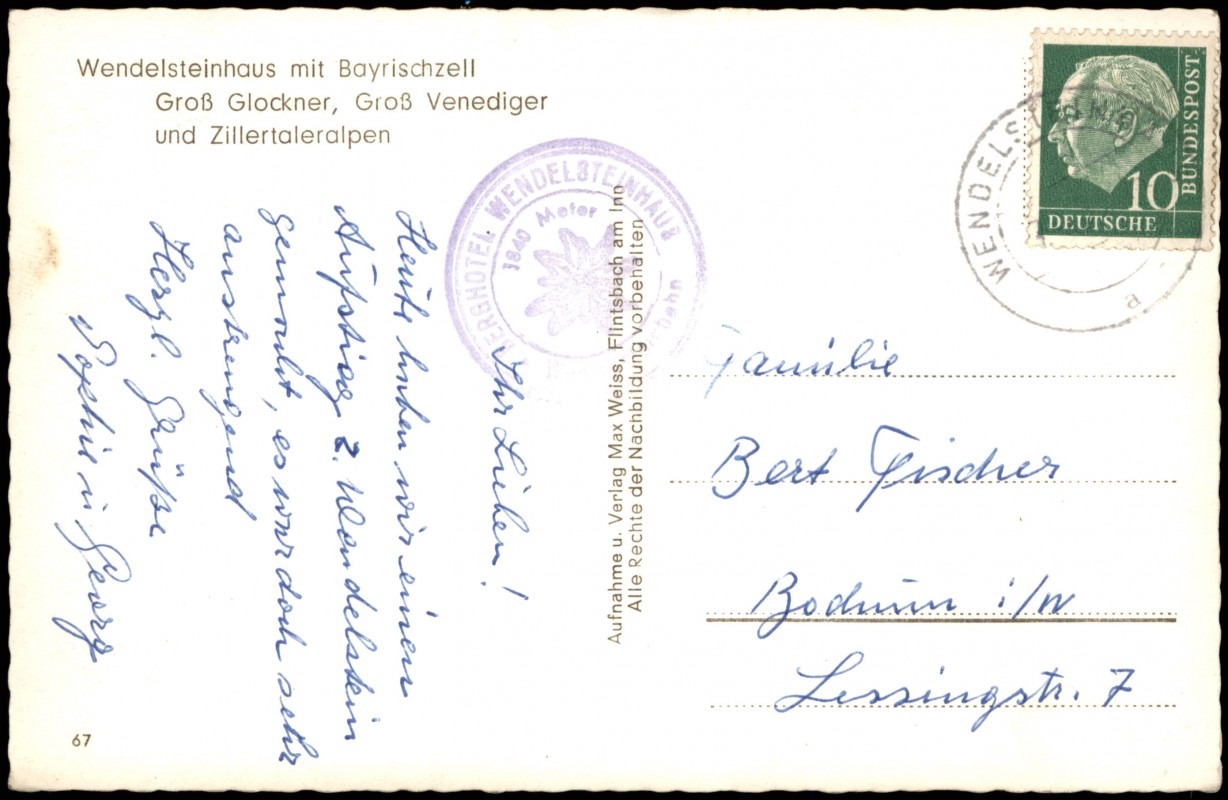 Wendelsteinhaus mit Bayrischzell
Groß Glockner, Groß Venediger
und Zillertaleralpen
BERGHOTEL WENDELSTEINHAUS
1840 Meter
WENDELS
10
DEUTSCHE
BUNDESPOST
a
Ihr Lieben!
Heute haben wir einen
Aufstieg z. Wendelstein
gemacht, es war doch sehr
anstrengend
Herzl. Grüße
u. Georg
Aufnahme u. Verlag Max Weiss, Flintsbach am Inn
Alle Rechte der Nachbildung vorbehalten
Familie
Bert Fischer
Bochum i/W
Lessingstr. 7
67